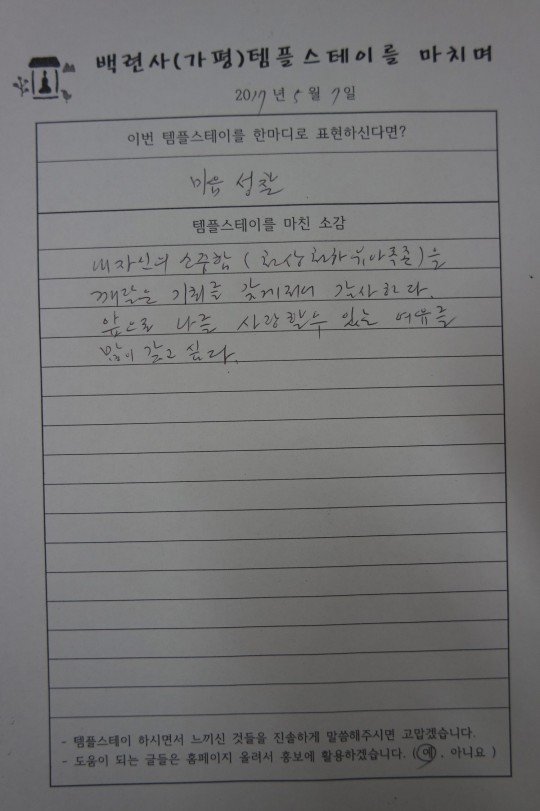 백련사(가평)템플스테이를 마치며
2017년 5월 7일
이번 템플스테이를 한마디로 표현하신다면?
마음 성찰
템플스테이를 마친 소감
내자신의 소중함 (천상천하 유아독존)을
깨달은 기회를 갖게되어 감사하다.
앞으로 나를 사랑할수 있는 여유를
많이 갖고 싶다.
- 템플스테이 하시면서 느끼신 것들을 진솔하게 말씀해주시면 고맙겠습니다.
- 도움이 되는 글들은 홈페이지 올려서 홍보에 활용하겠습니다. (예, 아니요 )